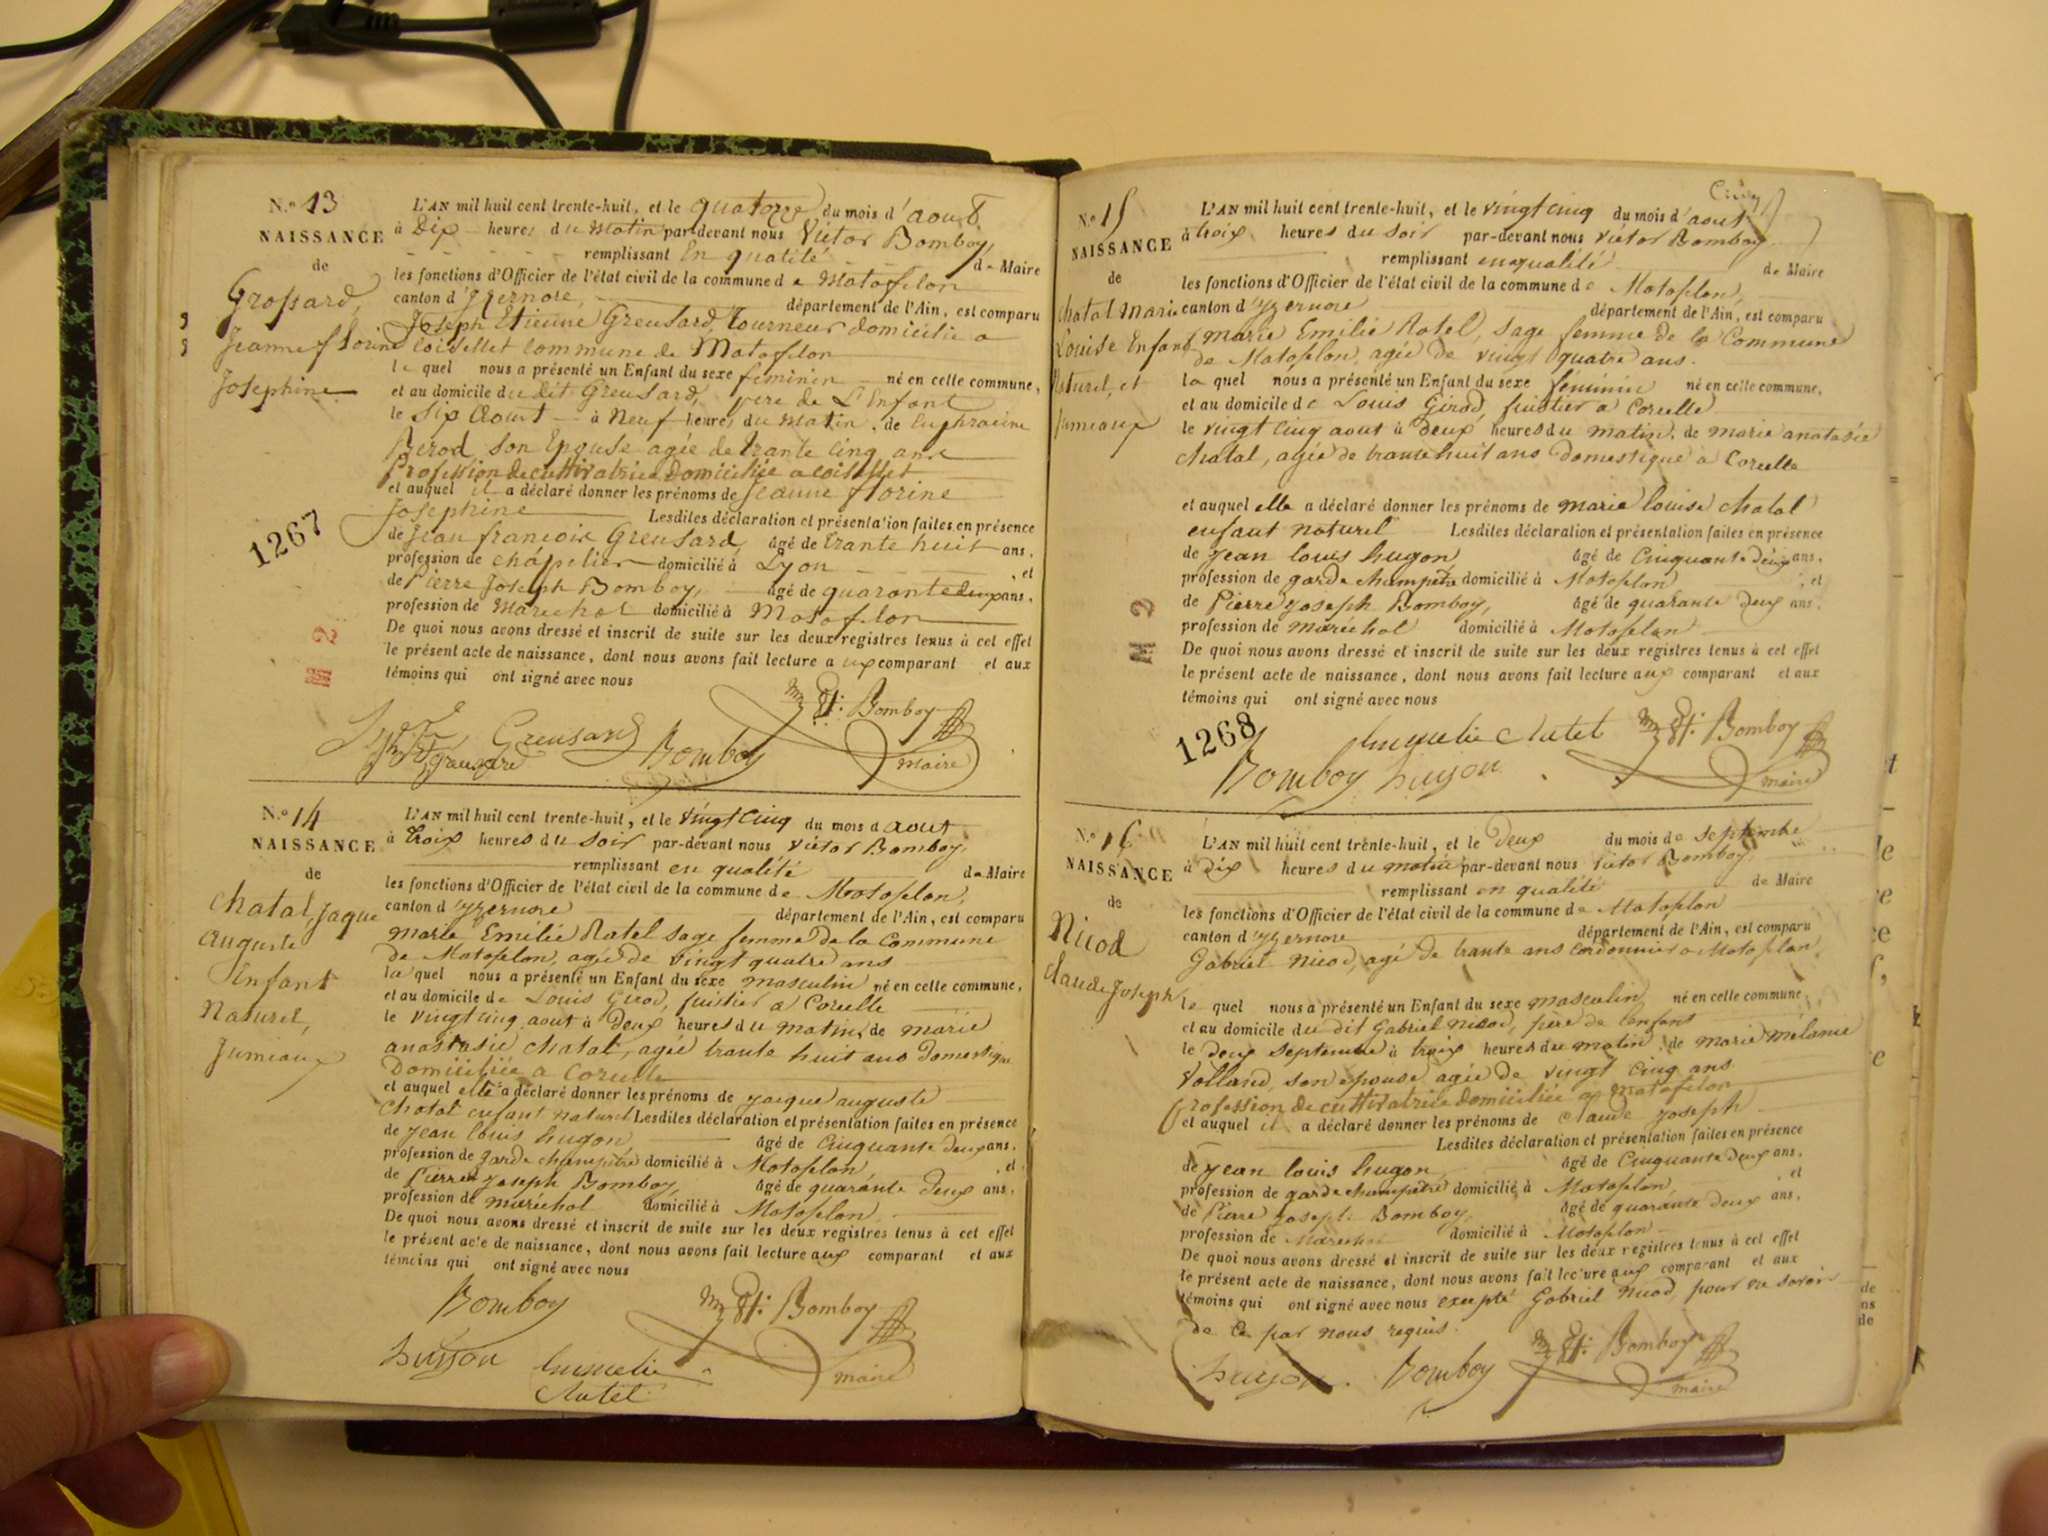 N.° 13
NAISSANCE
de
Grossard,
Jeanne florine
Josephine
L'AN mil huit cent trente-huit, et le quatorze du mois d'aout
à Dix heures du Matin par-devant nous Victor Bomboy,
remplissant En qualité de Maire
les fonctions d'Officier de l'état civil de la commune de Matafelon
canton d'Yzernore, département de l'Ain, est comparu
Joseph Etienne Greusard, Tourneur domicilié a
Coisellet commune de Matafelon
le quel nous a présenté un Enfant du sexe feminin né en cette commune,
et au domicile du dit Greusard, pere de L'Enfant
le Six Aout à Neuf heures du Matin, de Euphrasine
Berod son Epouse agée de trante cinq ans
Profession de cultivatrice domiciliée a coisellet
et auquel il a déclaré donner les prénoms de Jeanne florine
Josephine Lesdites déclaration et présentation faites en présence
de Jean francois Greusard, âgé de trante huit ans,
profession de chapelier domicilié à Lyon, et
de Pierre Joseph Bomboy, âgé de quarante deux ans,
profession de Marechal domicilié à Matafelon
De quoi nous avons dressé et inscrit de suite sur les deux registres tenus à cet effet
le présent acte de naissance, dont nous avons fait lecture aux comparant et aux
témoins qui ont signé avec nous
1267
M 2
Greusard Bomboy
Bomboy
maire
N.° 14
NAISSANCE
de
Chatal, Jaque
auguste
Enfant
Naturel,
Jumeaux
L'AN mil huit cent trente-huit, et le vingt cinq du mois d aout
à trois heures du soir par-devant nous victor Bomboy,
remplissant en qualité de Maire
les fonctions d'Officier de l'état civil de la commune de Matafelon,
canton d'yzernore département de l'Ain, est comparu
Marie Emilie Ratel sage femme de la Commune
de Matafelon, agée de vingt quatre ans
la quel nous a présenté un Enfant du sexe masculin né en cette commune,
et au domicile de Louis Girod, fuitier a Corcelle
le vingt cinq aout à deux heures du matin, de marie
anastasie chatal, agée trante huit ans domestique
Domiciliée a Corcelle
et auquel elle a déclaré donner les prénoms de jacque auguste
Chatal enfant naturel Lesdites déclaration et présentation faites en présence
de jean louis hugon âgé de Cinquante deux ans,
profession de garde champêtre domicilié à Matafelon, et
de Pierre joseph Bomboy, âgé de quarante deux ans,
profession de maréchal domicilié à Matafelon,
De quoi nous avons dressé et inscrit de suite sur les deux registres tenus à cet effet
le présent acte de naissance, dont nous avons fait lecture aux comparant et aux
témoins qui ont signé avec nous
Bomboy Bomboy
hugon
maire
N.° 15
NAISSANCE
de
Chatal Marie
Louise Enfant
Naturel, et
Jumeaux
L'AN mil huit cent trente-huit, et le vingt cinq du mois d'aout
à trois heures du soir par-devant nous victor Bomboy
remplissant en qualité de Maire
les fonctions d'Officier de l'état civil de la commune de Matafelon,
canton d'yzernore département de l'Ain, est comparu
Marie Emilie Ratel, sage femme de la Commune
de Matafelon, agée de vingt quatre ans.
la quel nous a présenté un Enfant du sexe féminin né en cette commune,
et au domicile de Louis Girod, fuitier a Corcelle
le vingt cinq aout à deux heures du matin, de marie anatasie
chatal, agée de trante huit ans domestique a Corcelle
et auquel elle a déclaré donner les prénoms de marie louise chatal
enfant naturel Lesdites déclaration et présentation faites en présence
de jean louis hugon âgé de Cinquante deux ans,
profession de garde champêtre domicilié à Matafelon, et
de Pierre joseph Bomboy, âgé de quarante deux ans,
profession de maréchal domicilié à Matafelon
De quoi nous avons dressé et inscrit de suite sur les deux registres tenus à cet effet
le présent acte de naissance, dont nous avons fait lecture aux comparant et aux
témoins qui ont signé avec nous
M 2
1268
Bomboy
Bomboy hugon
maire
N.° 16
NAISSANCE
de
Nicod
Claude Joseph
L'AN mil huit cent trente-huit, et le Deux du mois de septembre
à dix heures du matin par-devant nous victor Bomboy,
remplissant en qualité de Maire
les fonctions d'Officier de l'état civil de la commune de Matafelon
canton d'yzernore département de l'Ain, est comparu
Gabriel Nicod, agé de trante ans cordonnier a Matafelon,
le quel nous a présenté un Enfant du sexe masculin né en cette commune,
et au domicile du dit Gabriel Nicod, père de lenfant
le deux septembre à trois heures du matin, de marie mélanie
Volland, son epouse agée de vingt Cinq ans
profession de cultivatrice domiciliée a Matafelon
et auquel il a déclaré donner les prénoms de claude joseph
Lesdites déclaration et présentation faites en présence
de jean louis hugon âgé de Cinquante deux ans,
profession de garde champêtre domicilié à Matafelon et
de Pierre joseph Bomboy âgé de quarante deux ans,
profession de Maréchal domicilié à Matafelon
De quoi nous avons dressé et inscrit de suite sur les deux registres tenus à cet effet
le présent acte de naissance, dont nous avons fait lecture aux comparant et aux
témoins qui ont signé avec nous excepté Gabriel Nicod, pour ne savoir
de ce par nous requis.
hugon Bomboy Bomboy
maire